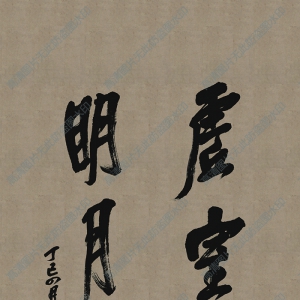 虚室
明月
丁巳四月